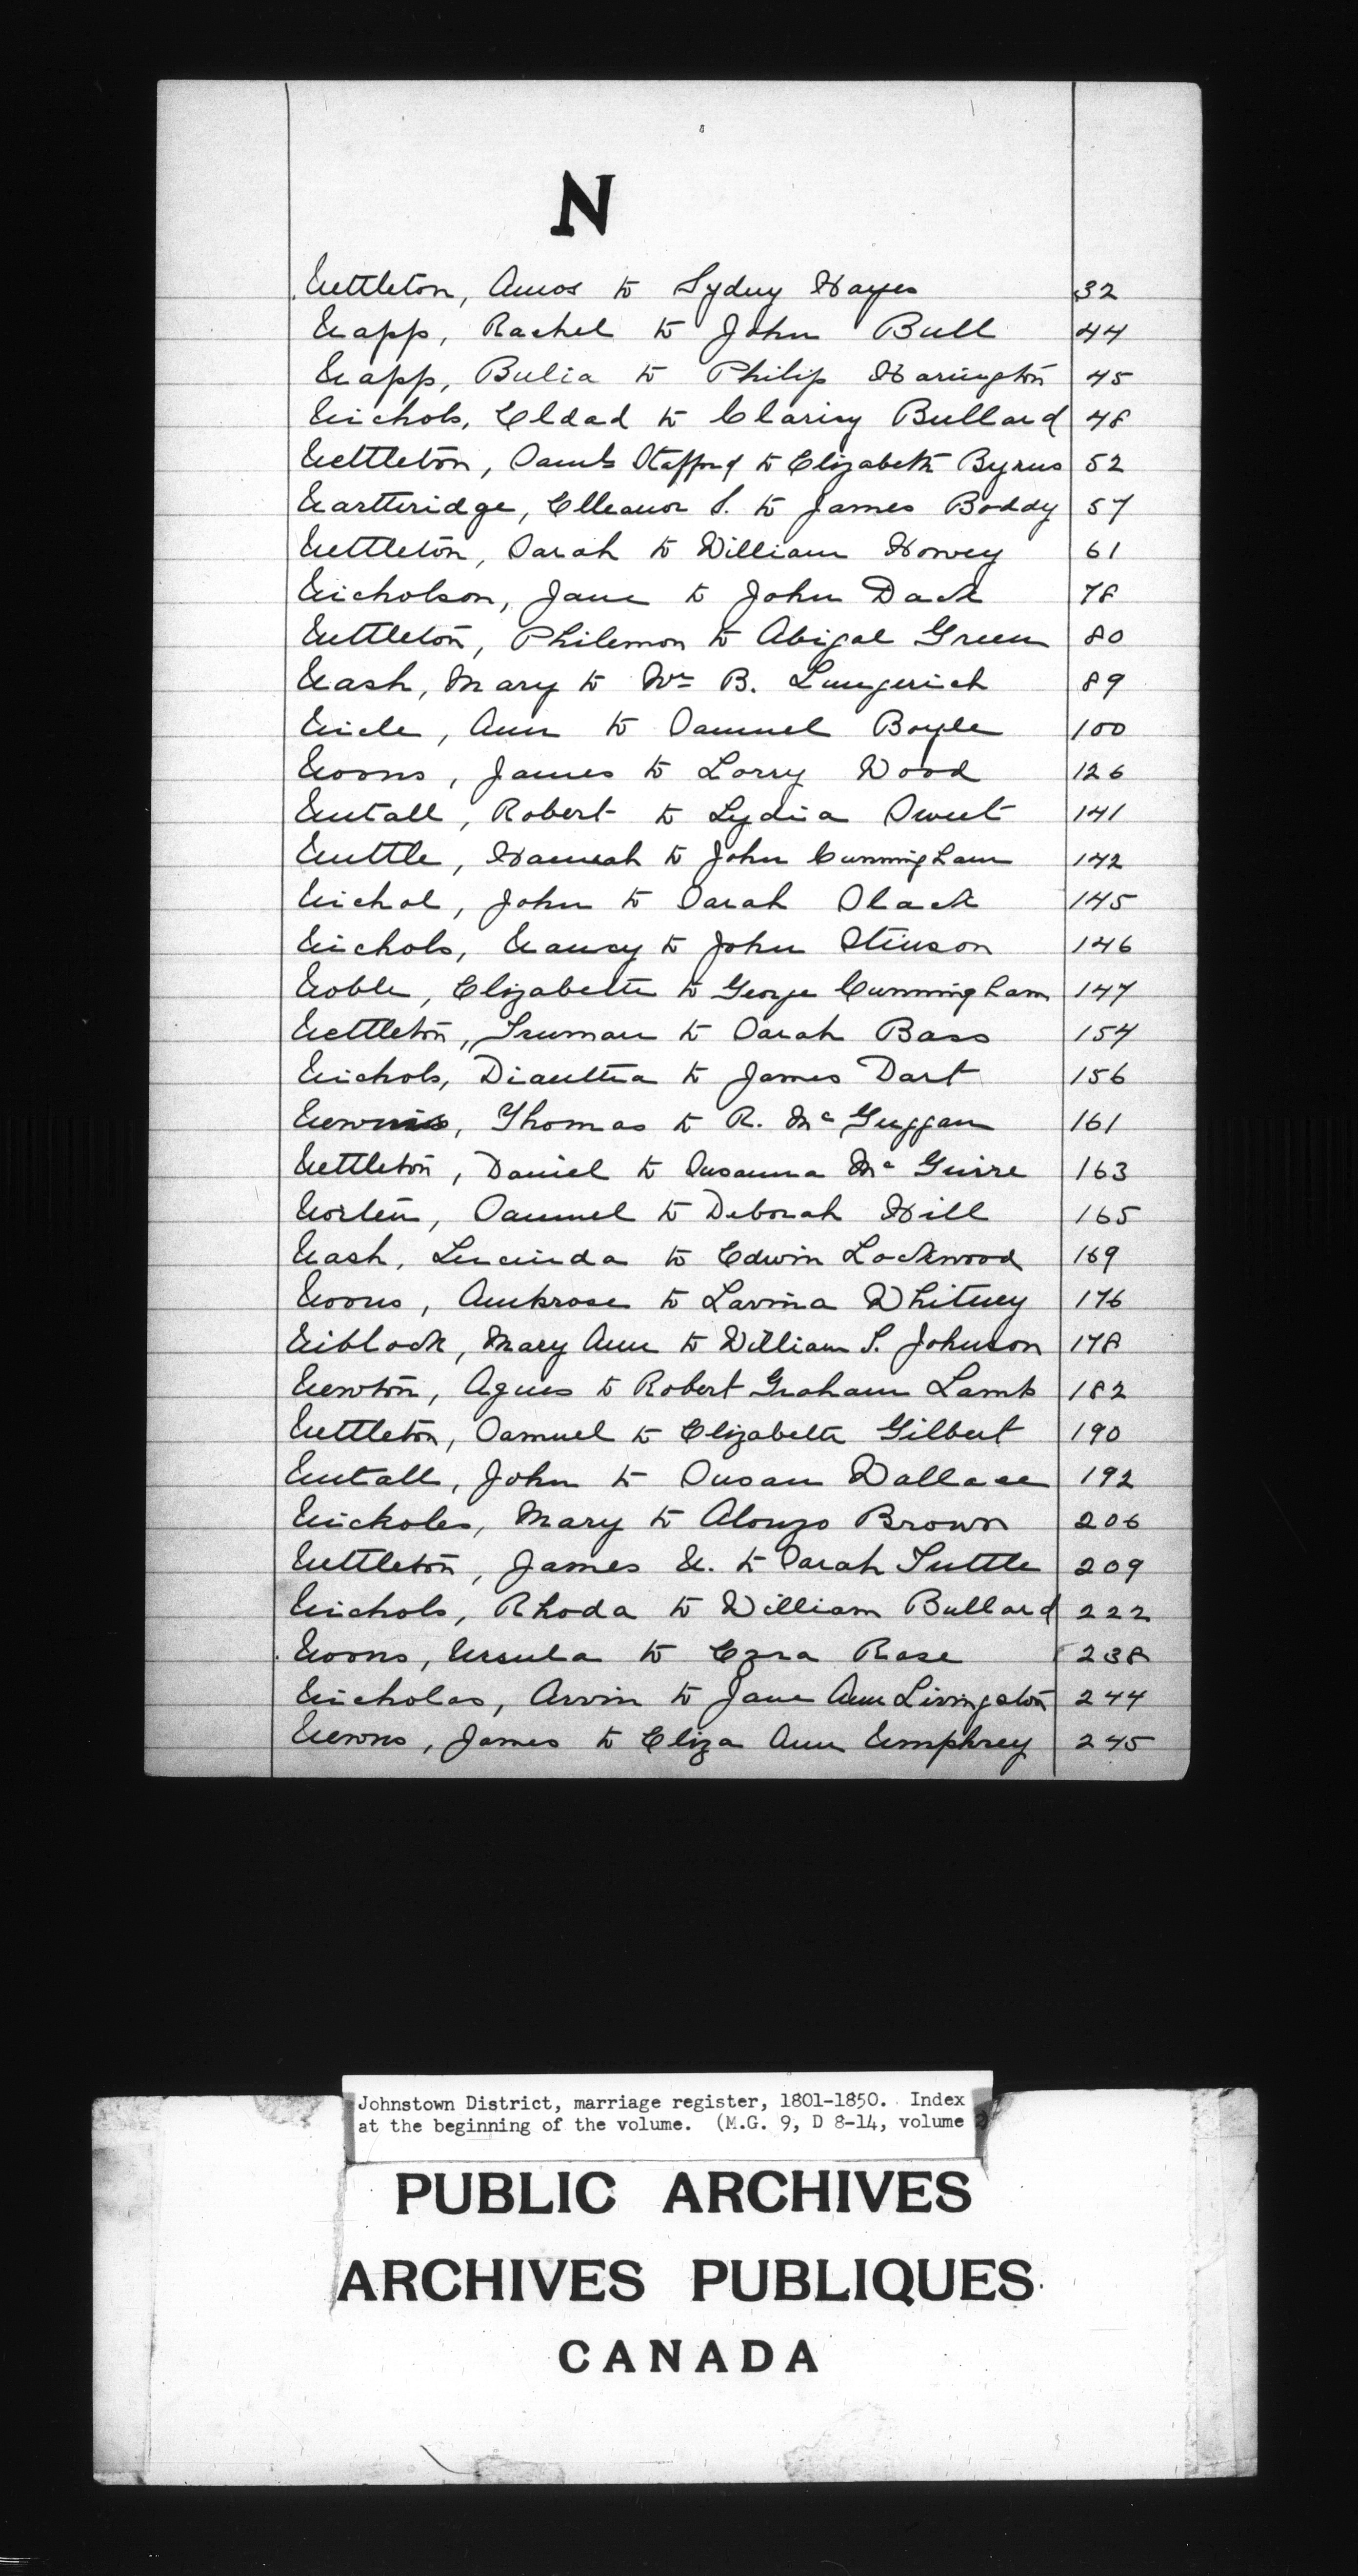 N
Nettleton, Amos to Sydny Hayes 32
Napp, Rachel to John Bull 44
Napp, Bulia to Philip Harington 45
Nichols, Eldad to Clarisy Bullard 48
Nettleton, Saml Stafford to Elizabeth Byrns 52
Nartteridge, Elleanor S. to James Boddy 57
Nettleton, Sarah to William Howey 61
Nicholson, Jane to John Dack 78
Nettleton, Philemon to Abigal Green 80
Nash, Mary to Wm B. 89
Nicle, Ann to Samuel Boyle 100
Noons, James to Lorry Wood 126
Nutall, Robert to Lydia Sweet 141
Nuttle, Hannah to John Cunningham 142
Nichol, John to Sarah Slack 145
Nichols, Nancy to John Stinson 146
Noble, Elizabeth to George Cunningham 147
Nettleton, Truman to Sarah Bass 154
Nichols, Diantha to James Dart 156
Thomas to R. McGuggan 161
Nettleton, Daniel to Susanna McGuire 163
Norten, Samuel to Deborah Hill 165
Nash, Lucinda to Edwin Lockwood 169
Noons, Ambrose to Lavina Whitney 176
Niblock, Mary Ann to William S. Johnson 178
Newton, Agnes to Robert Graham Lamb 182
Nettleton, Samuel to Elizabeth Gilbert 190
Nutall, John to Susan Wallace 192
Nickoles, Mary to Alonzo Brown 206
Nettleton, James N. to Sarah Tuttle 209
Nichols, Rhoda to William Bullard 222
Noons, Ursula to Ezra Rose 238
Nicholas, Arvin to Jane Ann Livingston 244
Newns, James to Eliza Ann Umphrey 245
Johnstown District, marriage register, 1801-1850. Index
at the beginning of the volume. (M.G. 9, D 8-14, volume
PUBLIC ARCHIVES
ARCHIVES PUBLIQUES
CANADA